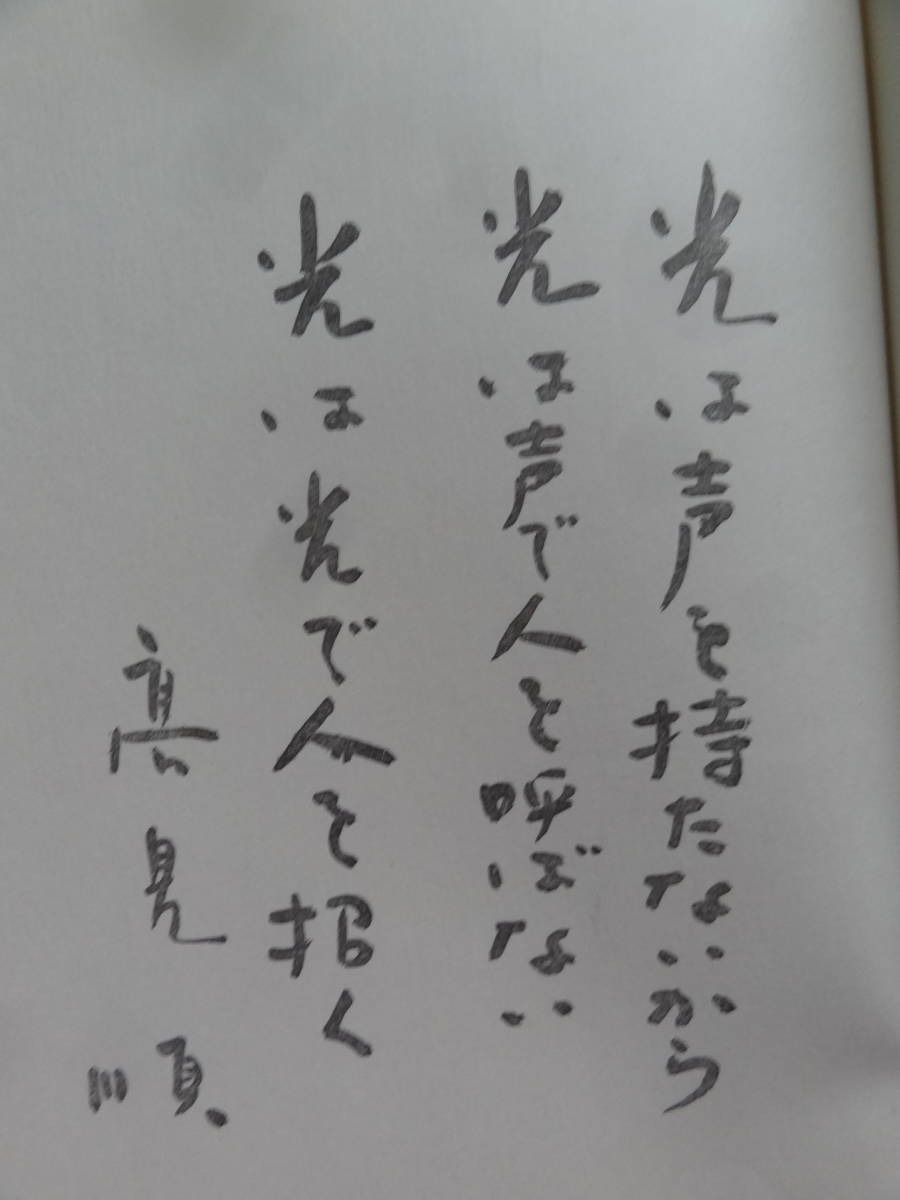 光は声を持たないから
光は声で人を呼ばない
光は光で人を招く
高見順